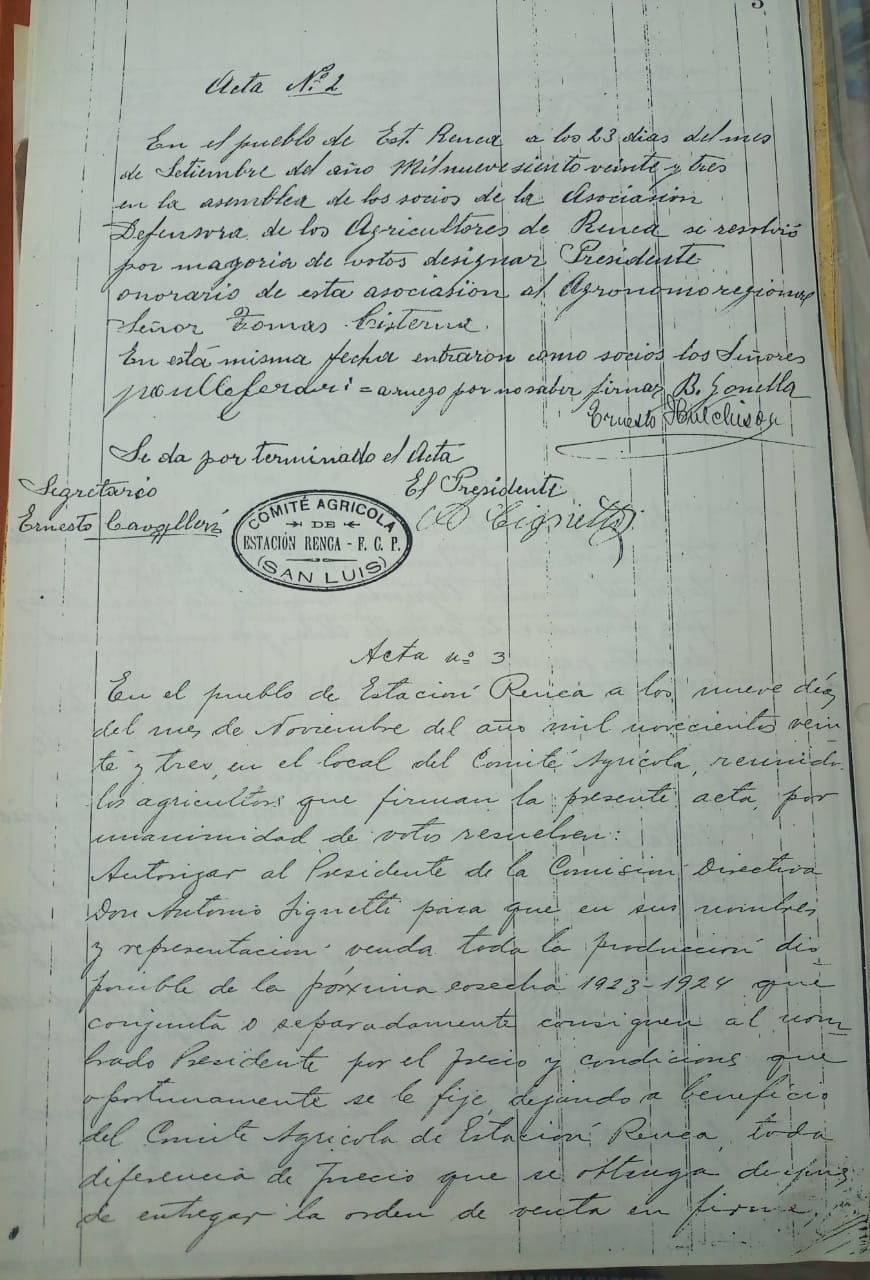 3
Acta Nº 2
En el pueblo de Est. Renca a los 23 dias del mes
de Setiembre del año Mil nuevesiento veinte y tres
en la asemblea de los socios de la Asociasión
Defensora de los Agricultores de Renca se resolvió
por magoria de votos designar Presidente
onorario de esta asociasion al Agronomo regional
Señor Tomas Cisterna.
En está misma fecha entraron como socios los Señores
= a ruego por no saber firmar B. Gonella
Ernesto Hutchison
Se da por terminado el Actá
Segretario El Presidente
Ernesto Cignetti
COMITÉ AGRICOLA
DE
ESTACIÓN RENCA - F. C. P.
(SAN LUIS)
Acta nº 3
En el pueblo de Estación Renca a los nueve días
del mes de Noviembre del año mil novecientos vein
te y tres, en el local del Comité Agrícola, reunido
los agricultors que firman la presente acta, por
unanimidad de votos resuelven:
Autorizar al Presidente de la Comision Directiva
Don Antonio Signetti para que en sus nombres
y representacion venda toda la produccion dis
ponible de la póxima cosecha 1923-1924 que
conjunta o separadamente consignen al nom
brado Presidente por el precio y condicions que
oportunamente se le fije, dejando a beneficio
del Comite Agricola de Estación Renca, toda
diferencia de precio que se obtenga despues
de entregar la orden de venta en firme,